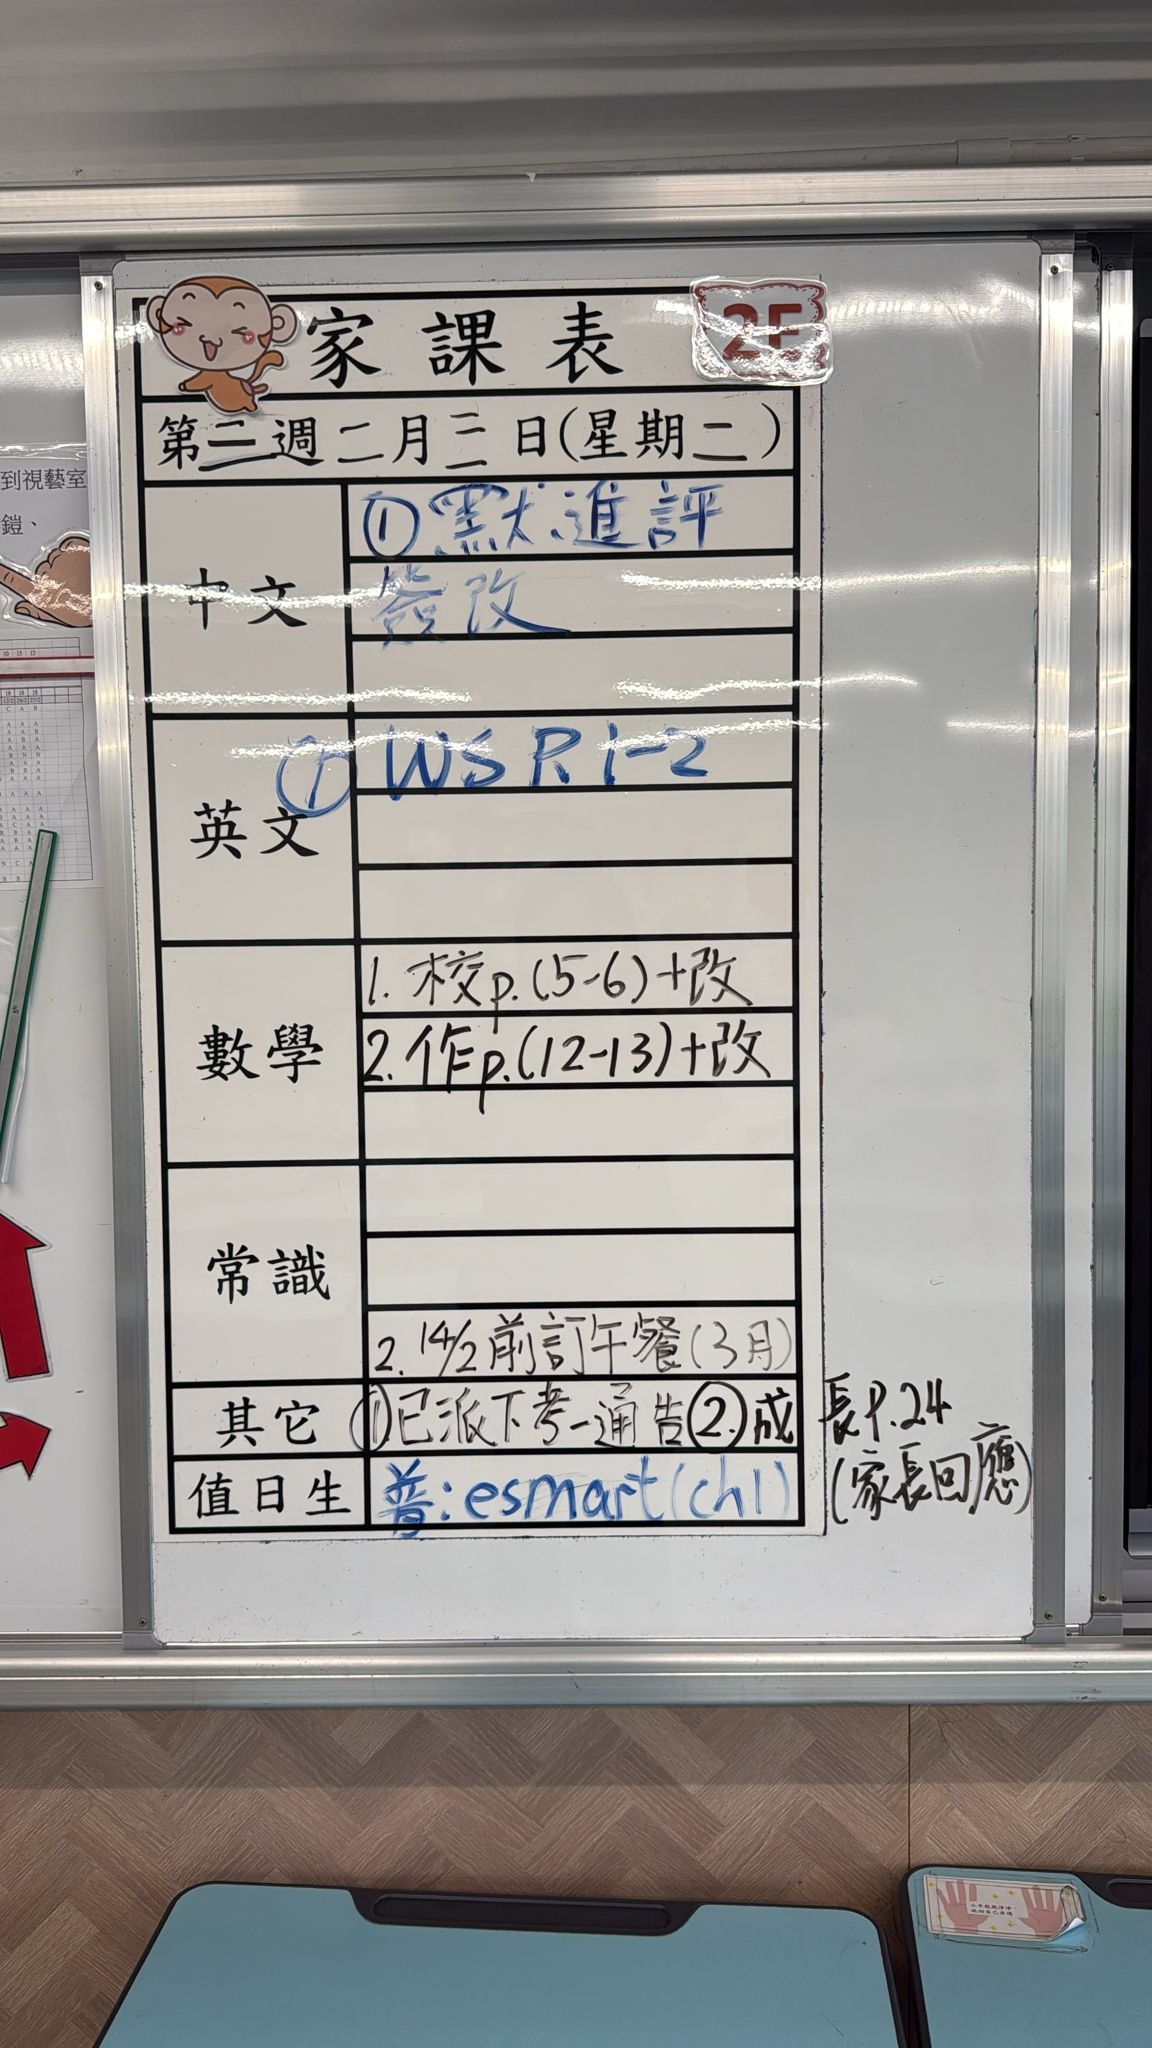 家課表
2F
第二週二月三日(星期二)
中文
①默進評
簽改
英文
① WS R 1-2
數學
1. 校p.(5-6)+改
2. 作p.(12-13)+改
常識
2. 14/2前訂午餐(3月)
其它
①已派下考一通告②成長P.24
(家長回應)
值日生
普:esmart(ch1)
到視藝室
鎧、